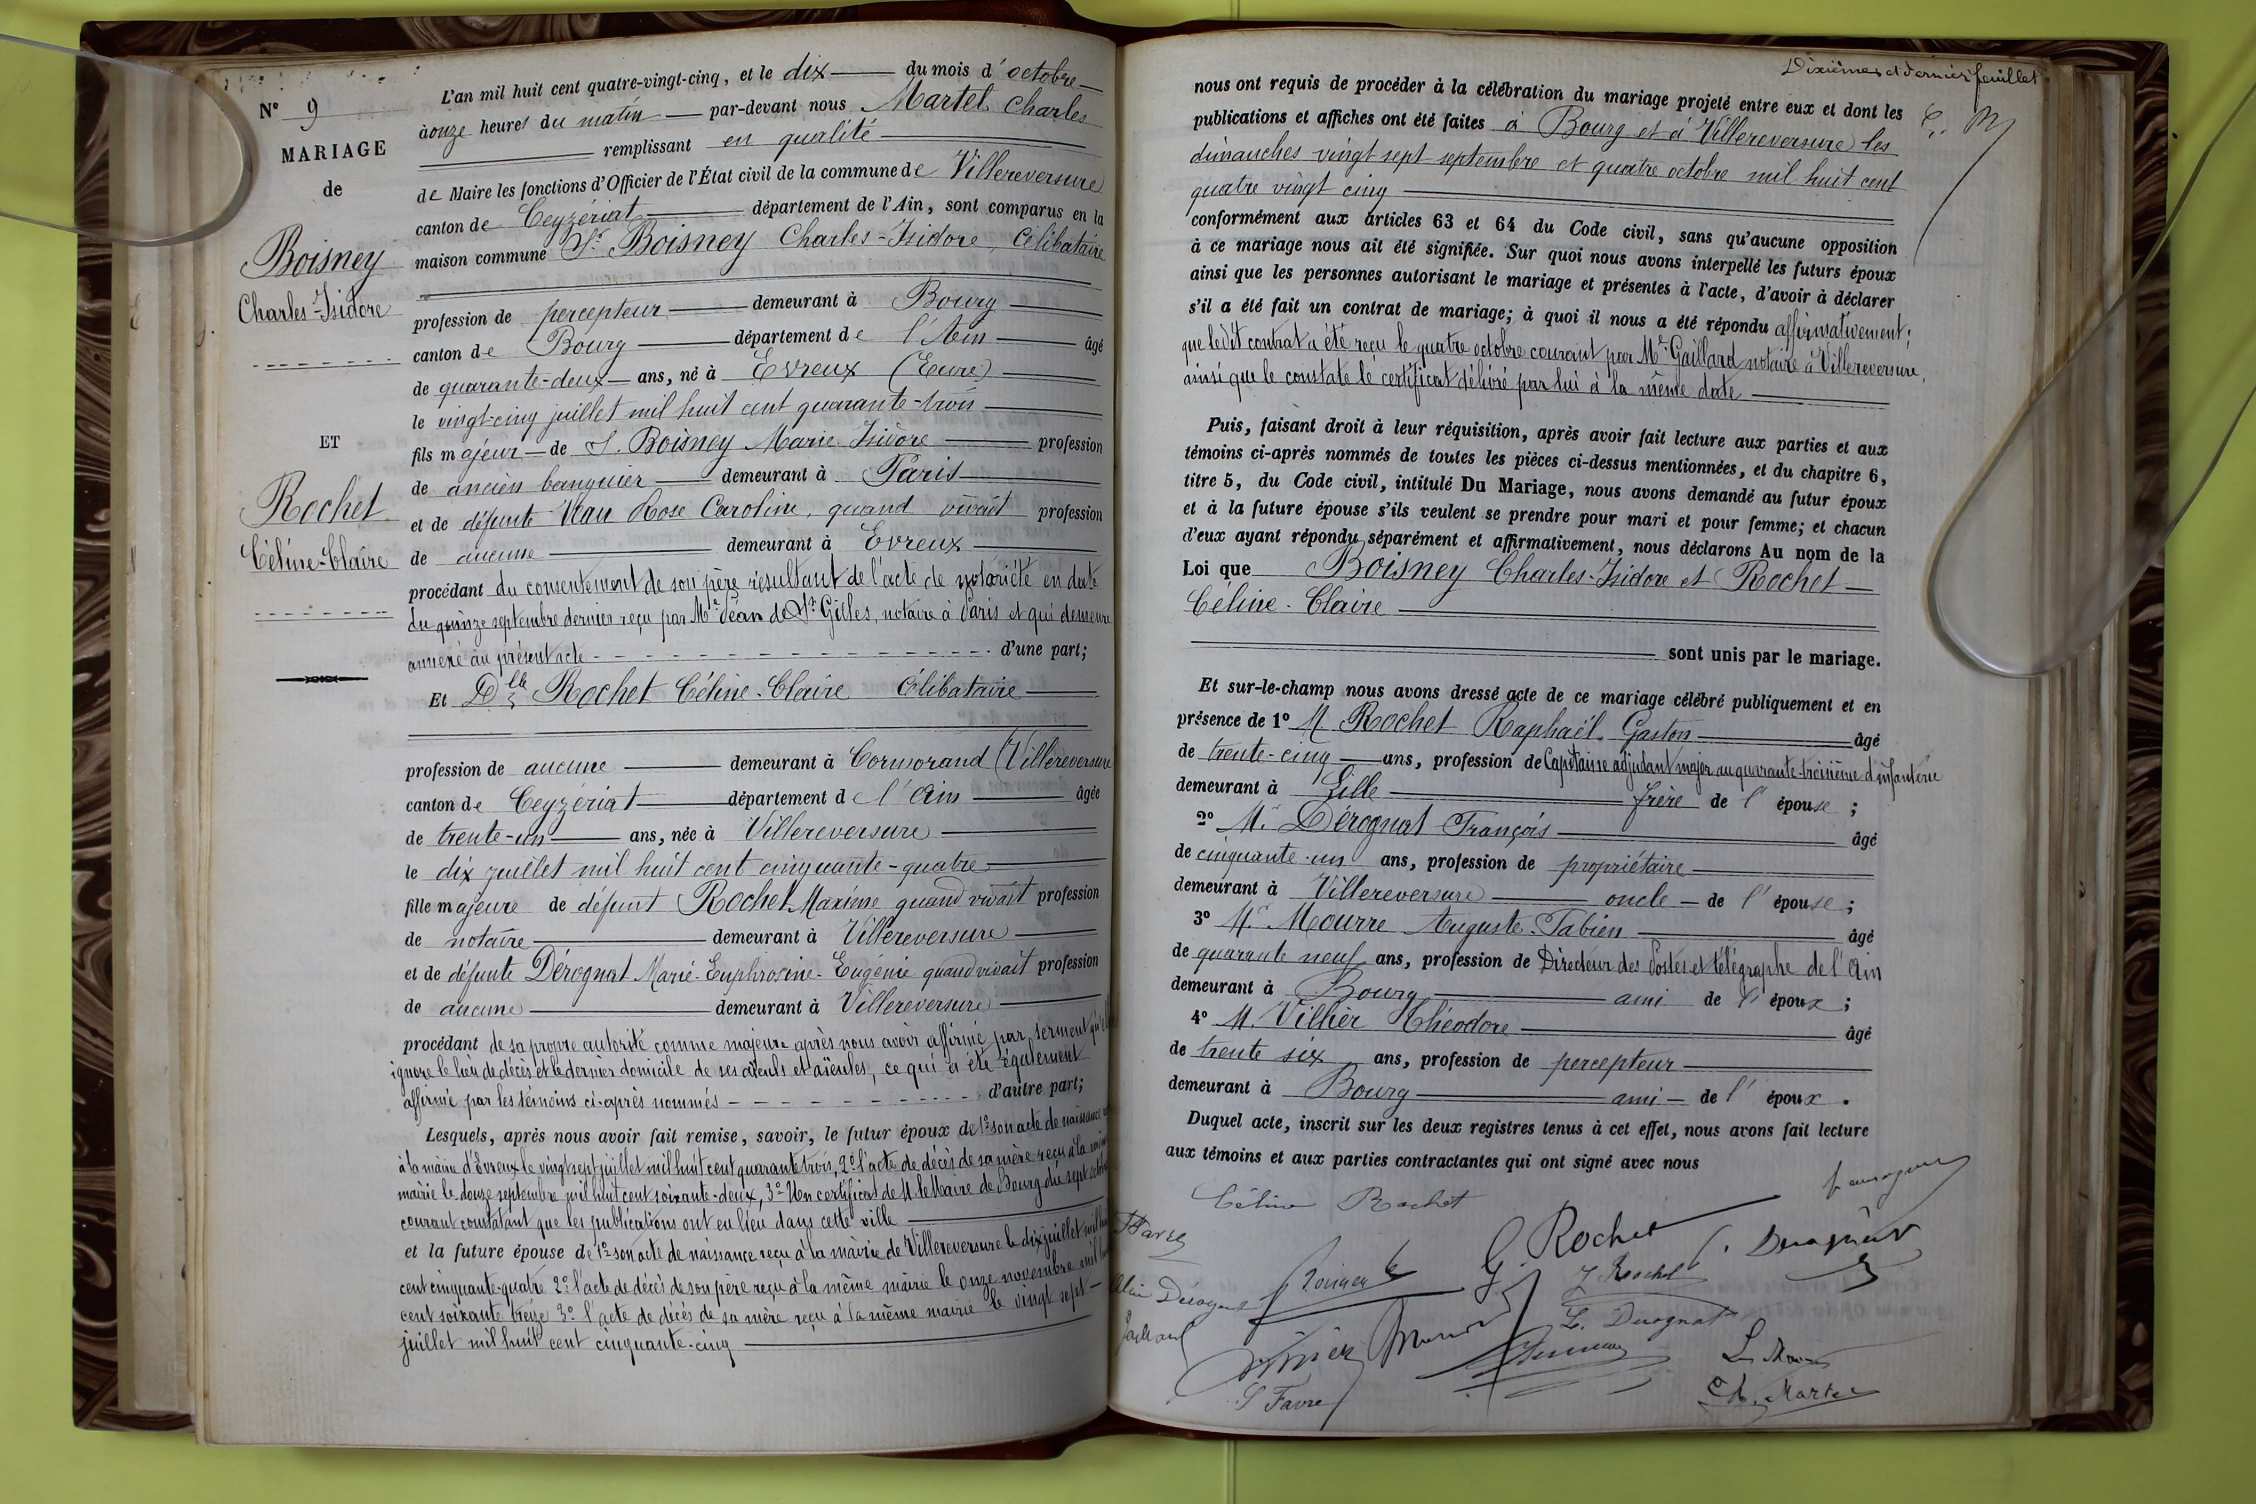 N° 9
MARIAGE
de
Boisney
Charles-Isidore
ET
Rochet
Céline-Claire
L'an mil huit cent quatre-vingt-cinq, et le dix du mois d'octobre
à onze heures du matin par-devant nous Martel Charles
remplissant en qualité
de Maire les fonctions d'Officier de l'État civil de la commune de Villereversure
canton de Ceyzériat département de l'Ain, sont comparus en la
maison commune Sr Boisney Charles-Isidore, Célibataire
profession de percepteur demeurant à Bourg
canton de Bourg département de l'Ain âgé
de quarante-deux ans, né à Evreux (Eure)
le vingt-cinq juillet mil huit cent quarante-trois
fils majeur de S. Boisney Marie Isidore profession
de ancien banquier demeurant à Paris
et de défunte Viau Rose Caroline, quand vivait profession
de aucune demeurant à Evreux
procédant du consentement de son père résultant de l'acte de notoriété en date
du quinze septembre dernier reçu par Me Jean de St Gilles, notaire à Paris et qui demeure
annexé au présent acte d'une part;
Et Dlle Rochet Céline-Claire Célibataire
profession de aucune demeurant à Cormorand (Villereversure
canton de Ceyzériat département de l'Ain âgée
de trente-un ans, née à Villereversure
le dix juillet mil huit cent cinquante-quatre
fille majeure de défunt Rochet Maxime quand vivait profession
de notaire demeurant à Villereversure
et de défunte Dérognat Marie-Euphrosine-Eugénie quand vivait profession
de aucune demeurant à Villereversure
procédant de sa propre autorité comme majeure après nous avoir affirmé par serment qu'elle
ignore le lieu de décès et le dernier domicile de ses aïeuls et aïeules, ce qui a été également
affirmé par les témoins ci-après nommés d'autre part;
Lesquels, après nous avoir fait remise, savoir, le futur époux de 1° son acte de naissance
à la mairie d'Evreux le vingt sept juillet mil huit cent quarante trois, 2° l'acte de décès de sa mère reçu à la même
mairie le douze septembre mil huit cent soixante-deux, 3° Un certificat de M. le Maire de Bourg du sept octobre
courant constatant que les publications ont eu lieu dans cette ville
et la future épouse de 1° son acte de naissance reçu à la mairie de Villereversure le dix juillet mil huit
cent cinquante-quatre 2° l'acte de décès de son père reçu à la même mairie le onze novembre mil huit
cent soixante treize 3° l'acte de décès de sa mère reçu à la même mairie le vingt sept
juillet mil huit cent cinquante-cinq
Dixième et dernier feuillet
C. M
nous ont requis de procéder à la célébration du mariage projeté entre eux et dont les
publications et affiches ont été faites à Bourg et à Villereversure les
dimanches vingt sept septembre et quatre octobre mil huit cent
quatre vingt cinq
conformément aux articles 63 et 64 du Code civil, sans qu'aucune opposition
à ce mariage nous ait été signifiée. Sur quoi nous avons interpellé les futurs époux
ainsi que les personnes autorisant le mariage et présentes à l'acte, d'avoir à déclarer
s'il a été fait un contrat de mariage; à quoi il nous a été répondu affirmativement;
que ledit contrat a été reçu le quatre octobre courant par Me Gaillard notaire à Villereversure,
ainsi que le constate le certificat délivré par lui à la même date
Puis, faisant droit à leur réquisition, après avoir fait lecture aux parties et aux
témoins ci-après nommés de toutes les pièces ci-dessus mentionnées, et du chapitre 6,
titre 5, du Code civil, intitulé Du Mariage, nous avons demandé au futur époux
et à la future épouse s'ils veulent se prendre pour mari et pour femme; et chacun
d'eux ayant répondu séparément et affirmativement, nous déclarons Au nom de la
Loi que Boisney Charles-Isidore et Rochet
Céline-Claire
sont unis par le mariage.
Et sur-le-champ nous avons dressé acte de ce mariage célébré publiquement et en
présence de 1° M Rochet Raphaël Gaston âgé
de trente-cinq ans, profession de Capitaine adjudant major au quarante troisième d'infanterie
demeurant à Lille frère de l'épouse;
2° M. Dérognat François âgé
de cinquante-un ans, profession de propriétaire
demeurant à Villereversure oncle de l'épouse;
3° M. Mourre Auguste-Fabien âgé
de quarante neuf ans, profession de Directeur des Postes et télégraphe de l'Ain
demeurant à Bourg ami de l'époux;
4° M. Villier Théodore âgé
de trente six ans, profession de percepteur
demeurant à Bourg ami de l'époux.
Duquel acte, inscrit sur les deux registres tenus à cet effet, nous avons fait lecture
aux témoins et aux parties contractantes qui ont signé avec nous
Céline Rochet
G Rochet
J. Rochet
L. Dérognat
S Favre
Ch. Martel